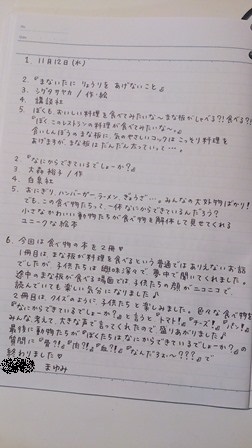 1. 11月12日(水)
2. 『まないたに りょうりを あげないこと』
3. シゲタサヤカ / 作・絵
4. 講談社
5. ぼくも、おいしい料理を食べてみたいな〜 まな板がしゃべる?!食べる?!
『ぼく、このレストランの料理が食べてみたいな〜』
食いしんぼうのまな板に、気のやさしいコックはこっそり料理を
あげますが、まな板はだんだん太っていって…。
2. 『なにからできているでしょーか?』
3. 大森裕子 / 作
4. 白泉社
5. おにぎり、ハンバーガー、ラーメン、ぎょうざ…。みんなの大好物ばかり!
でも、この食べ物たち、一体なにからできているんだろう?
小さなかわいい動物たちが食べ物を解体して見せてくれる
ユニークな絵本
6. 今回は食べ物の本を2冊♡
1冊目は、まな板が料理を食べるという普通ではありえないお話
でしたが、子供たちは興味津々で、夢中で聞いてくれました。
途中のまな板が食べる場面では、子供たちの顔がニコニコで
読んでいても楽しい気分になりました♪
2冊目は、クイズのように子供たちと楽しみました。色々な食べ物を
『なにからできているでしょーか?』と言うと『トマト!』『チーズ!』『パン!』
みんな考えて大きな声で言ってくれたので盛りあがりました♪
最後に動物たちが『ぼくたちは、なにからできているでしょーか?』の
質問に『骨?!』『肉?!』『血?!』『なんだろぉ〜???』で
終わりました♡
まゆみ